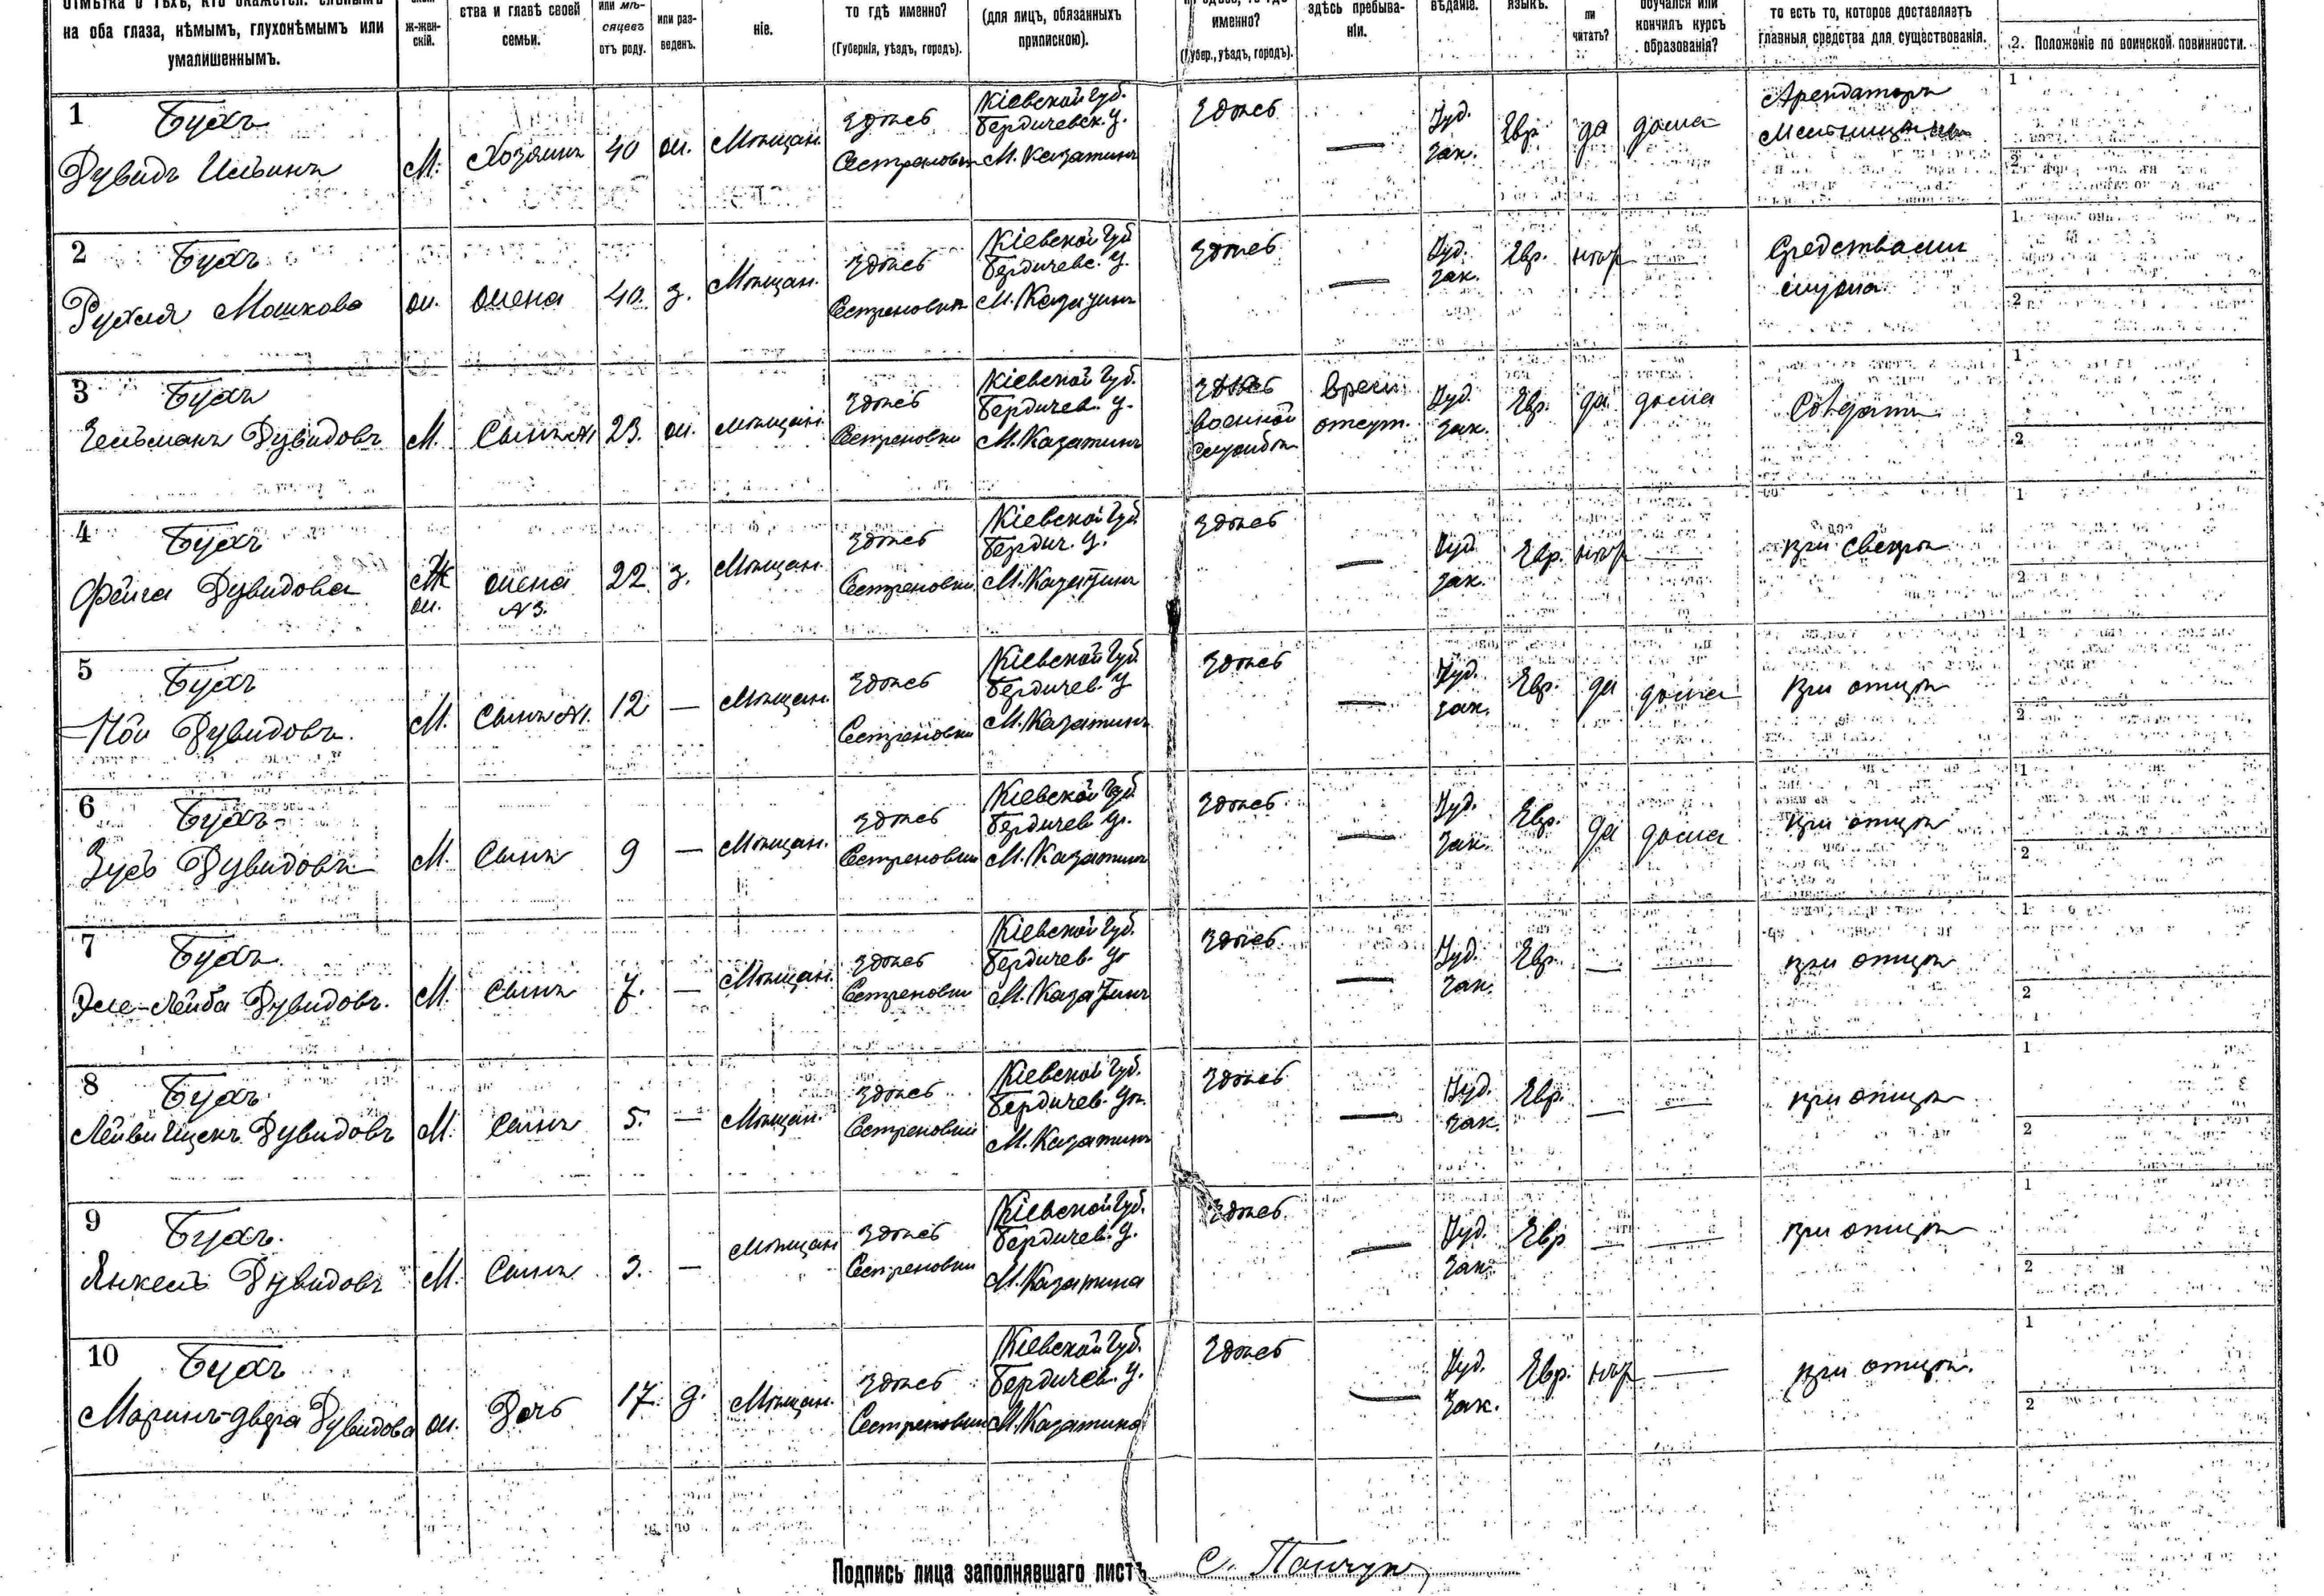 отмѣтка о тѣхъ, кто окажется: слѣпымъ
на оба глаза, нѣмымъ, глухонѣмымъ или
умалишеннымъ.
ж-жен-
скій.
ства и главѣ своей
семьи.
или мѣ-
сяцевъ
отъ роду.
или раз-
веденъ.
ніе.
то гдѣ именно?
(Губернія, уѣздъ, городъ).
(для лицъ, обязанныхъ
припискою).
именно?
(Губер., уѣздъ, городъ).
здѣсь пребыва-
ніи.
вѣданіе.
языкъ.
ли
читать?
обучался или
кончилъ курсъ
образованія?
то есть то, которое доставляетъ
главныя средства для существованія.
2. Положеніе по воинской повинности.
1 Бухъ
Дувидъ Ильинъ
М. Хозяинъ 40 ж. Мѣщан.
Здѣсь
Сестреновки
Кіевской Губ.
Бердичевск. у.
М. Казатинъ
Здѣсь — Іуд.
зак. Евр. да дома
Арендаторъ
1
2
2 Бухъ
Рухля Мошкова
ж. жена 40. з. Мѣщан.
Здѣсь
Сестреновки
Кіевской Губ
Бердичевс. у.
М. Казатинъ
Здѣсь — Іуд.
зак. Евр. нѣт —
Средствами
мужа
1
2
3 Бухъ
Зельманъ Дувидовъ
М. Сынъ №1 23. ж. мѣщан.
Здѣсь
Сестреновки
Кіевской Губ.
Бердичев. у.
М. Казатинъ
военной
службѣ
Врем.
отсут.
Іуд.
зак. Евр. да дома
Солдатъ
1
2
4 Бухъ
Фейга Дувидова
ж. жена
№3. 22 з. Мѣщан.
Здѣсь
Сестреновки
Кіевской Губ
Бердич. у.
М. Казатинъ
Здѣсь — Іуд
зак. Евр. нѣт —
при свекрѣ
1
2
5 Бухъ
Дувидовъ.
М. Сынъ №1. 12 — Мѣщан.
Здѣсь
Сестреновки
Кіевской Губ
Бердичев. у
М. Казатинъ
Здѣсь — Іуд.
зак. Евр. да дома
при отцѣ
1
2
6 Бухъ
Зусь Дувидовъ
М. Сынъ 9 — Мѣщан.
Здѣсь
Сестреновки
Кіевской Губ
Бердичев. у.
М. Казатинъ
Здѣсь — Іуд.
зак. Евр. да дома
при отцѣ
1
2
7 Бухъ
Лейба Дувидовъ.
М. Сынъ 7. — Мѣщан.
Здѣсь
Сестреновки
Кіевской Губ.
Бердичев. у
М. Казатинъ
Здѣсь — Іуд.
зак. Евр. — —
при отцѣ
1
2
8 Бухъ
Дувидовъ
М. Сынъ 5. — Мѣщан.
Здѣсь
Сестреновки
Кіевской Губ.
Бердичев. у.
М. Казатинъ
Здѣсь — Іуд.
зак. Евр. — —
при отцѣ
1
2
9 Бухъ.
Янкель Дувидовъ
М. Сынъ 3. — Мѣщан
Здѣсь
Сестреновки
Кіевской Губ.
Бердичев. у.
М. Казатина
Здѣсь — Іуд.
зак. Евр — —
при отцѣ
1
2
10 Бухъ
Дувидова
ж. Дочь 17. д. Мѣщан.
Здѣсь
Сестреновки
Кіевской Губ.
Бердичев. у.
М. Казатина
Здѣсь — Іуд.
Зак. Евр. нѣт —
при отцѣ.
1
2
Подпись лица заполнявшаго листъ